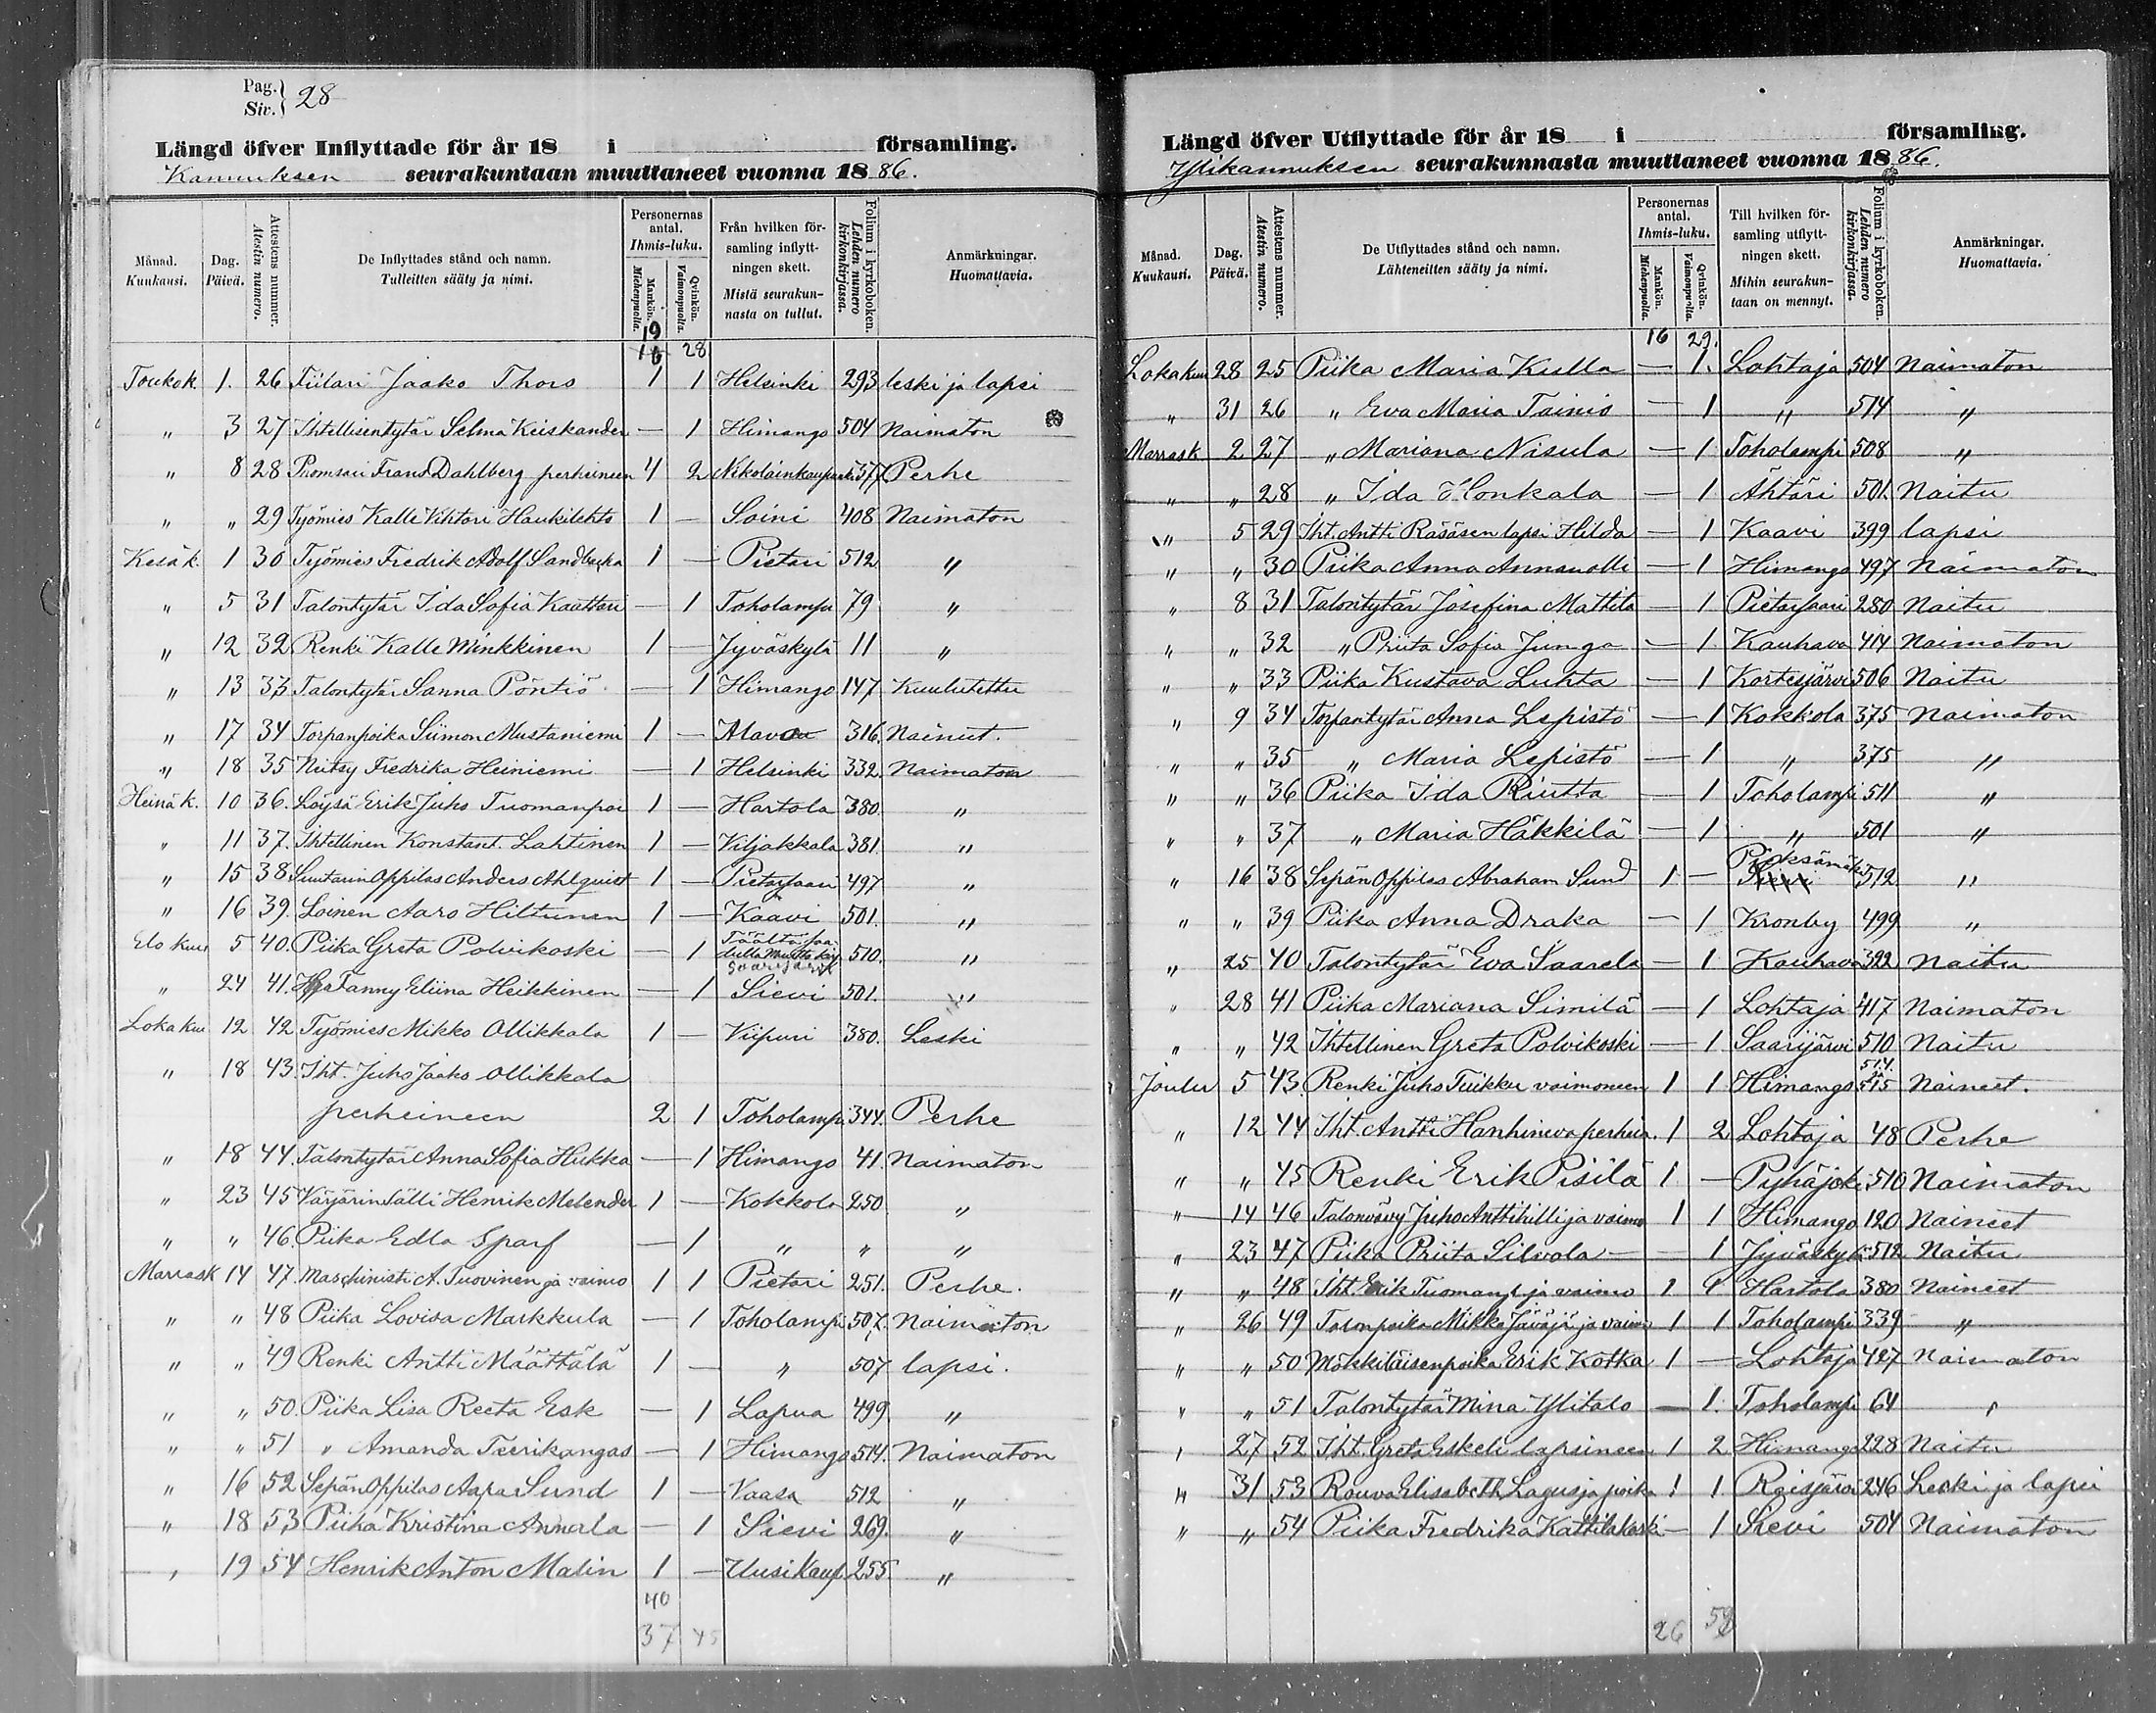 Pag. } 28
Siv. }
Längd öfver Inflyttade för år 18 i församling.
Kannuksen seurakuntaan muuttaneet vuonna 1886.
Månad. Kuukausi. Dag. Päivä. Attestens nummer. Atestin numero. De Inflyttades stånd och namn. Tulleitten sääty ja nimi. Personernas antal. Ihmis-luku. Mankön. Miehenpuolia. Qvinkön. Vaimonpuolia. Från hvilken församling inflyttningen skett. Mistä seurakunnasta on tullut. Folium i kyrkoboken. Lehden numero kirkonkirjassa. Anmärkningar. Huomattavia.
19
16 28
Toukok 1. 26 Fiilari Jaako Thors 1 1 Helsinki 293 leski ja lapsi
" 3 27 Ihtellisentytär Selma Keiskander — 1 Himango 504 Naimaton
" 8 28 Frans Dahlberg perheineen 4 2 Nikolainkaupunki 377 Perhe
" " 29 Työmies Kalle Vihtori Haukilehto 1 — Soini 408 Naimaton
Kesäk. 1 30 Työmies Fredrik Adolf Sandbacka 1 — Pietari 512 "
" 5 31 Talontytär Ida Sofia Kaattari — 1 Toholampi 79 "
" 12 32 Renki Kalle Minkkinen 1 — Jyväskylä 11 "
" 13 33 Talontytär Sanna Pöntiö — 1 Himango 147 Kuulutettu
" 17 34 Torpanpoika Siimon Mustaniemi 1 — 316. Nainut.
" 18 35 Neitsy Fredrika Heiniemi — 1 Helsinki 332 Naimaton
Heinäk. 10 36. Löysä Erik Juho Tuomanpoi 1 — Hartola 380. "
" 11 37. Ihtellinen Konstant. Lahtinen 1 — Viljakkala 381. "
" 15 38 Suutarin oppilas Anders Ahlqvist 1 — Pietarsaari 497 "
" 16 39. Loinen Aaro Hiltunen 1 — Kaavi 501. "
Elo kuu 5 40. Piika Greta Polvikoski — 1 Täältä saadulla muutto kirj Saarijärvi 510. "
" 24 41. Fanny Eliina Heikkinen — 1 Sievi 501. "
Loka kuu 12 42 Työmies Mikko Ollikkala 1 — Viipuri 380. Leski
" 18 43. Iht. Juho Jaako Ollikkala
perheineen 2 1 Toholampi 344. Perhe
" 18 44. Talontytär Anna Sofia Hukka — 1 Himango 41. Naimaton
" 23 45 Värjärin sälli Henrik Melender 1 — Kokkola 250 "
" " 46. Piika Edla Sparf — 1 " " "
Marrask 14 47. Maschinisti A. Tuovinen ja vaimo 1 1 Pietari 251. Perhe.
" " 48 Piika Lovisa Markkula — 1 Toholampi 507. Naimaton
" " 49 Renki Antti Määttälä 1 — " 507 lapsi.
" " 50. Piika Lisa Reeta Esk — 1 Lapua 499 "
" " 51 " Amanda Teerikangas — 1 Himango 514. Naimaton
" 16 52 Sepän Oppilas Aapa Sund 1 — Vaasa 512 "
" 18 53 Piika Kristina Annala — 1 Sievi 269. "
" 19 54 Henrik Anton Malin 1 — Uusikaup. 255. "
40
37 45
Längd öfver Utflyttade för år 18 i församling.
Ylikannuksen seurakunnasta muuttaneet vuonna 1886.
Månad. Kuukausi. Dag. Päivä. Attestens nummer. Atestin numero. De Utflyttades stånd och namn. Lähteneitten sääty ja nimi. Personernas antal. Ihmis-luku. Mankön. Miehenpuolia. Qvinkön. Vaimonpuolia. Till hvilken församling utflyttningen skett. Mihin seurakuntaan on mennyt. Folium i kyrkoboken. Lehden numero kirkonkirjassa. Anmärkningar. Huomattavia.
16 29.
Lokakuu 28 25 Piika Maria Kulla — 1. Lohtaja 504 Naimaton
" 31 26 " Eva Maria Tainio — 1 " 514 "
Marrask 2 27 " Mariana Nisula — 1 Toholampi 508 "
" " 28 " Ida Honkala — 1 Ähtäri 501. Naitu
" 5 29 Iht. Antti Räsäsen lapsi Hilda — 1 Kaavi 399 lapsi
" " 30 Piika Anna Annanolli — 1 Himango 497 Naimaton
" 8 31 Talontytär Josefina Mattila — 1 Pietarsaari 280 Naitu
" " 32 " Priita Sofia Junga — 1 Kauhava 414 Naimaton
" " 33 Piika Kustava Luhta — 1 Kortesjärvi 506 Naitu
" 9 34 Torpantytär Anna Lepistö — 1 Kokkola 375 Naimaton
" " 35 " Maria Lepistö — 1 " 375 "
" " 36 Piika Ida Riutta — 1 Toholampi 511 "
" " 37 " Maria Häkkilä — 1 " 501 "
" 16 38 Sepän oppilas Abraham Sund 1 — Pieksämäki Sievi 512 "
" " 39 Piika Anna Draka — 1 Kronby 499 "
" 25 40 Talontytär Eva Saarela — 1 Kauhava 322 Naitu
" 28 41 Piika Mariana Similä — 1 Lohtaja 417 Naimaton
" " 42 Ihtellinen Greta Polvikoski — 1 Saarijärvi 510 Naitu
Joulu 5 43. Renki Juho Tuikku vaimoneen 1 1 Himango 514. 515 Naineet.
" 12 44 Iht. Antti Hanhineva perhein. 1 2 Lohtaja 48 Perhe
" " 45 Renki Erik Pisilä 1 — Pyhäjoki 510 Naimaton
" 14 46 Talonvävy Juho Anttihilli ja vaimo 1 1 Himango 120 Naineet
" 23 47 Piika Priita Silvola — 1 Jyväskylä 512 Naitu
" " 48 Iht. Erik Tuomanp. ja vaimo 1 1 Hartola 380 Naineet
" 26 49 Talonpoika Mikko Jäväjä ja vaimo 1 1 Toholampi 339 "
" " 50 Mökkiläisenpoika Erik Kotka 1 — Lohtaja 427 Naimaton
" " 51 Talontytär Mina Ylitalo — 1. Toholampi 64 "
" 27 52 Iht. Greta Eskeli lapsineen 1 2 Himango 228 Naitu
" 31 53 Rouva Elisabeth Lagus ja poika 1 1 Reisjärvi 246 Leski ja lapsi
" " 54 Piika Fredrika Kattilakoski — 1 Sievi 504 Naimaton
26 58